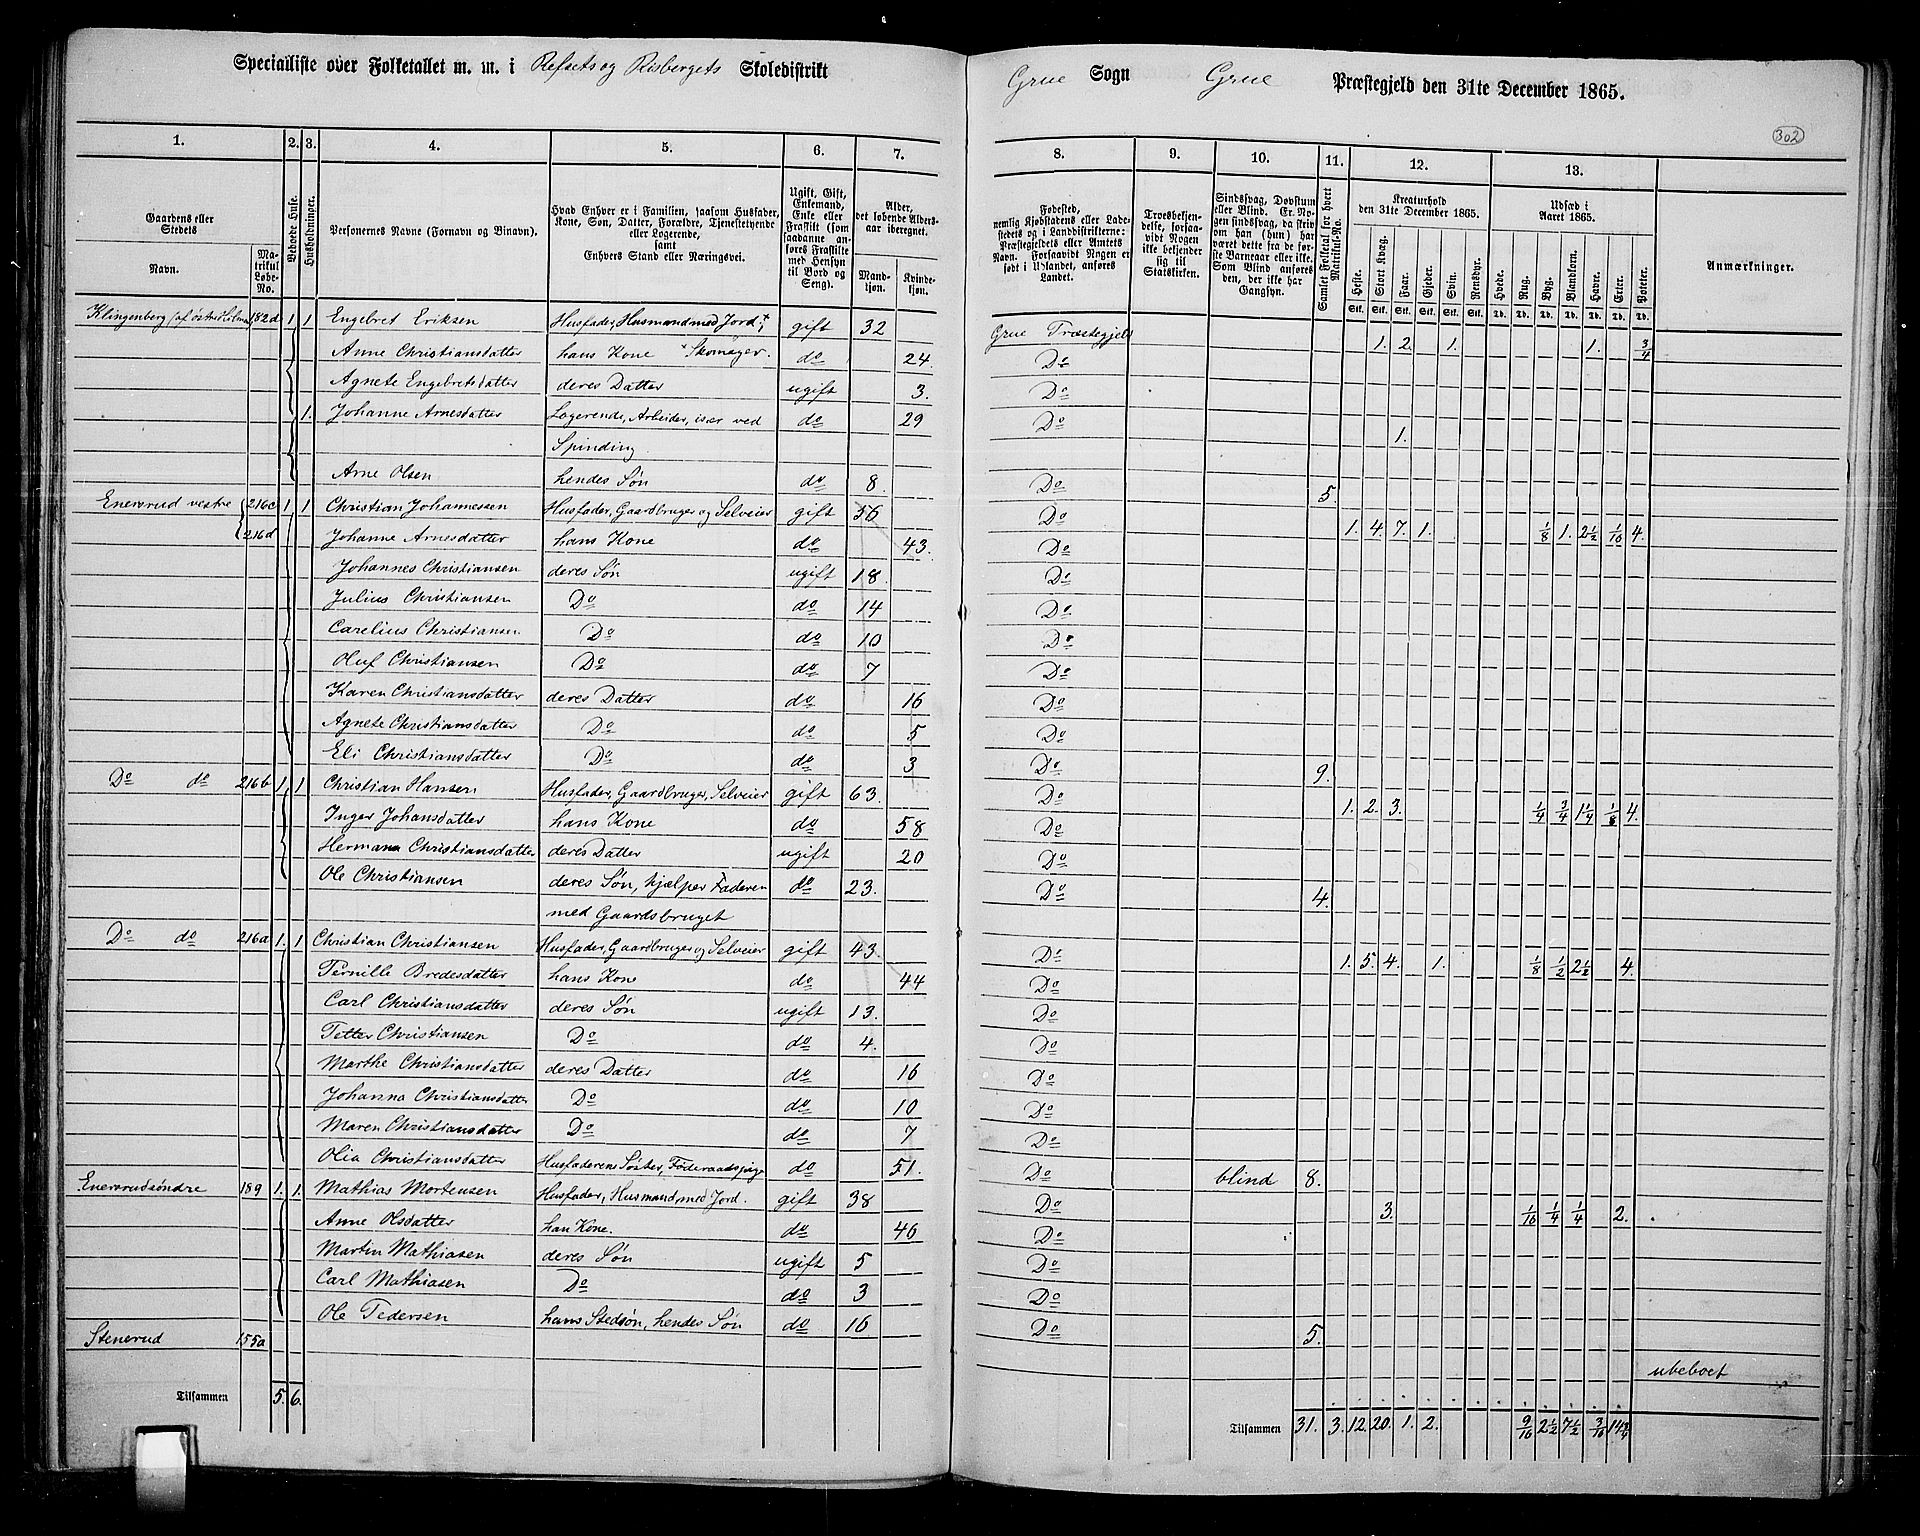 Specialliste over Folketallet m. m. i Refsets og Risbergets Skoledistrikt
Grue Sogn Grue Præstegjeld den 31te December 1865.
302
1. 2. 3. 4. 5. 6. 7. 8. 9. 10. 11. 12. 13.
Gaardens eller Stedets
Navn.
Matrikul Løbe-No.
Beboede Huse.
Husholdninger.
Personernes Navne (Fornavn og Binavn).
Hvad Enhver er i Familien, saasom Husfader, Kone, Søn, Datter, Forældre, Tjenestetyende eller Logerende, samt Enhvers Stand eller Næringsvei.
Ugift, Gift, Enkemand, Enke eller Fraskilt (som saadanne anføres Fraskilte med Hensyn til Bord og Seng).
Alder, det løbende Aldersaar iberegnet.
Mandkjøn.
Kvindekjøn.
Fødested, nemlig Kjøbstadens eller Ladestedets og i Landdistrikterne: Præstegjeldets eller Amtets Navn. Forsaavidt Nogen er født i Udlandet, anføres Landet.
Troesbekjendelse, forsaavidt Nogen ikke bekjender sig til Statskirken.
Sindssvag, Døvstum eller Blind. Er Nogen sindssvag, da skriv om han (hun) har været dette fra de første Barneaar eller ikke. Som Blind anføres den, der ikke har Gangsyn.
Samlet Folketal for hvert Matrikul-No.
Kreaturhold den 31te December 1865.
Heste. Stort Kvæg. Faar. Gjeder. Svin. Rensdyr.
Stk. Stk. Stk. Stk. Stk. Stk.
Udsæd i Aaret 1865.
Hvede. Rug. Byg. Blandkorn. Havre. Erter. Poteter.
Td. Td. Td. Td. Td. Td. Td.
Anmærkninger.
Klingenberg 182d 1 1 Engebret Eriksen Husfader, Husmand med Jord + gift 32 Grue Præstegjeld 1. 2. 1. 1. 3/4
Anne Christiansdatter hans Kone + Skomager. do 24. Do
Agnete Engebretsdatter deres Datter ugift 3. Do
1. Johanne Arnesdatter Logerende, Arbeider, især ved do 29 Do
Spinding. 1.
Arne Olsen hendes Søn do 8. Do 5.
Enersrud vestre 216c 1 1 Christian Johannessen Husfader, Gaardbruger og Selveier gift 56 Do 1. 4. 7. 1. 1/8 1. 2 1/2 1/16 4.
216d Johanne Arnesdatter hans Kone do 43. Do
Johannes Christiansen deres Søn ugift 18. Do
Julius Christiansen Do do 14 Do
Carelius Christiansen Do do 10 Do
Oluf Christiansen Do do 7 Do
Karen Christiansdatter deres Datter do 16 Do
Agnete Christiansdatter Do do 5 Do
Eli Christiansdatter Do do 3 Do 9.
Do do 216b 1. 1 Christian Hansen Husfader, Gaardbruger, Selveier gift 63. Do 1. 2. 3. 1/4 3/4 1 1/4 1/8 4.
Inger Johansdatter hans Kone do 58 Do
Hermana Christiansdatter deres Datter ugift 20 Do
Ole Christiansen deres Søn, hjælper Faderen do 23. Do 4.
med Gaardsbruget
Do do 216a 1. 1 Christian Christiansen Husfader, Gaardbruger og Selveier gift 43. Do 1. 5. 4. 1. 1/8 1/2 2 1/2 4.
Pernille Bredesdatter hans Kone do 44 Do
Carl Christiansdatter deres Søn ugift 13. Do
Petter Christiansen Do do 4. Do
Marthe Christiansdatter deres Datter do 16 Do
Johanna Christiansdatter Do do 10 Do
Maren Christiansdatter Do do 7 Do
Olia Christiansdatter Husfaderens Søster, Føderaadspige do 51. Do blind 8.
Enersrud søndre 189 1. 1. Mathias Mortensen Husfader, Husmand med Jord. gift 38 Do 3. 1/16 1/4 1/4 2.
Anne Olsdatter han Kone. do 46 Do
Martin Mathiasen deres Søn ugift 5 Do
Carl Mathiasen Do do 3 Do
Ole Pedersen hans Stedsøn, hendes Søn do 16 Do 5.
Stenerud 155a ubeboet
Tilsammen 5. 6.
Tilsammen 31. 3. 12. 20. 1. 2. 9/16 2 1/2 7 1/2 3/16 14 3/4